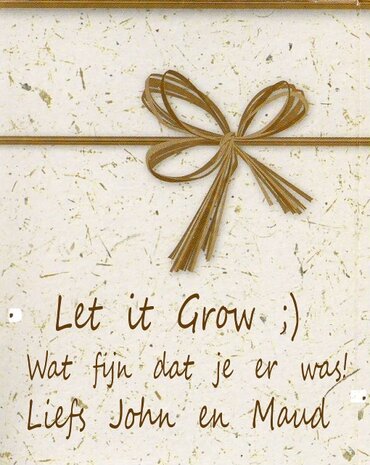 Let it Grow ;)
Wat fijn dat je er was!
Liefs John en Maud